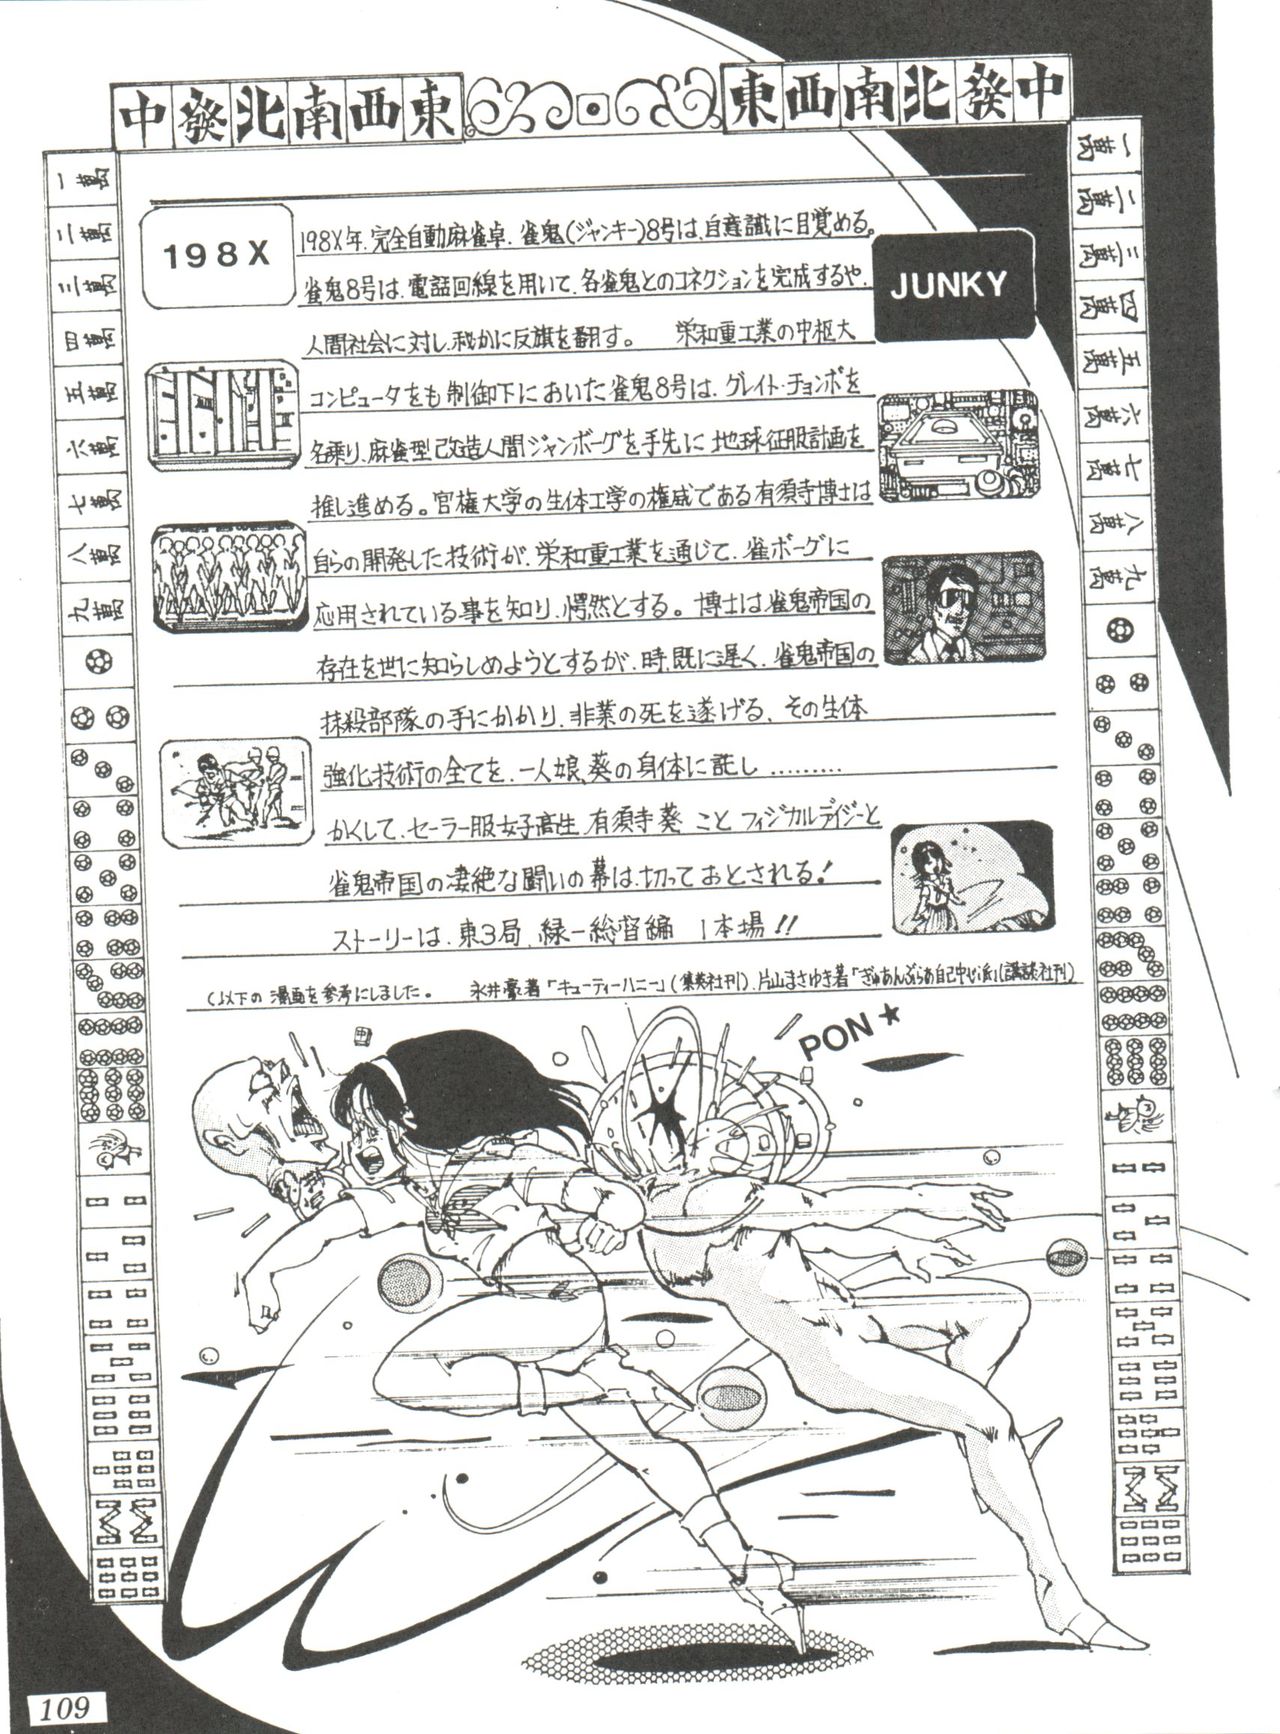 中發北南西東
東西南北發中
一萬
二萬
三萬
四萬
五萬
六萬
七萬
八萬
九萬
一萬
二萬
三萬
四萬
五萬
六萬
七萬
八萬
九萬
198X
JUNKY
198X年、完全自動麻雀卓、雀鬼(ジャンキー)8号は、自意識に目覚める。
雀鬼8号は、電話回線を用いて、各雀鬼とのコネクションを完成するや、
人間社会に対し、秘かに反旗を翻す。 栄和重工業の中枢大
コンピュータをも制御下においた雀鬼8号は、グレイト・チョンボを
名乗り、麻雀型改造人間ジャンボーグを手先に 地球征服計画を
推し進める。官権大学の生体工学の権威である有須寺博士は
自らの開発した技術が、栄和重工業を通じて、雀ボーグに
応用されている事を知り、愕然とする。博士は雀鬼帝国の
存在を世に知らしめようとするが、時、既に遅く、雀鬼帝国の
抹殺部隊の手にかかり、非業の死を遂げる、その生体
強化技術の全てを、一人娘、葵の身体に託し………
かくして、セーラー服女子高生、有須寺葵 こと フィジカルデイジーと
雀鬼帝国の凄絶な闘いの幕は、切っておとされる!
ストーリーは、東3局、緑一総督編 1本場!!
(以下の漫画を参考にしました。 永井豪著「キューティーハニー」(集英社刊)、片山まさゆき著「ぎゅわんぶらあ自己中心派」(講談社刊)
PON★
109